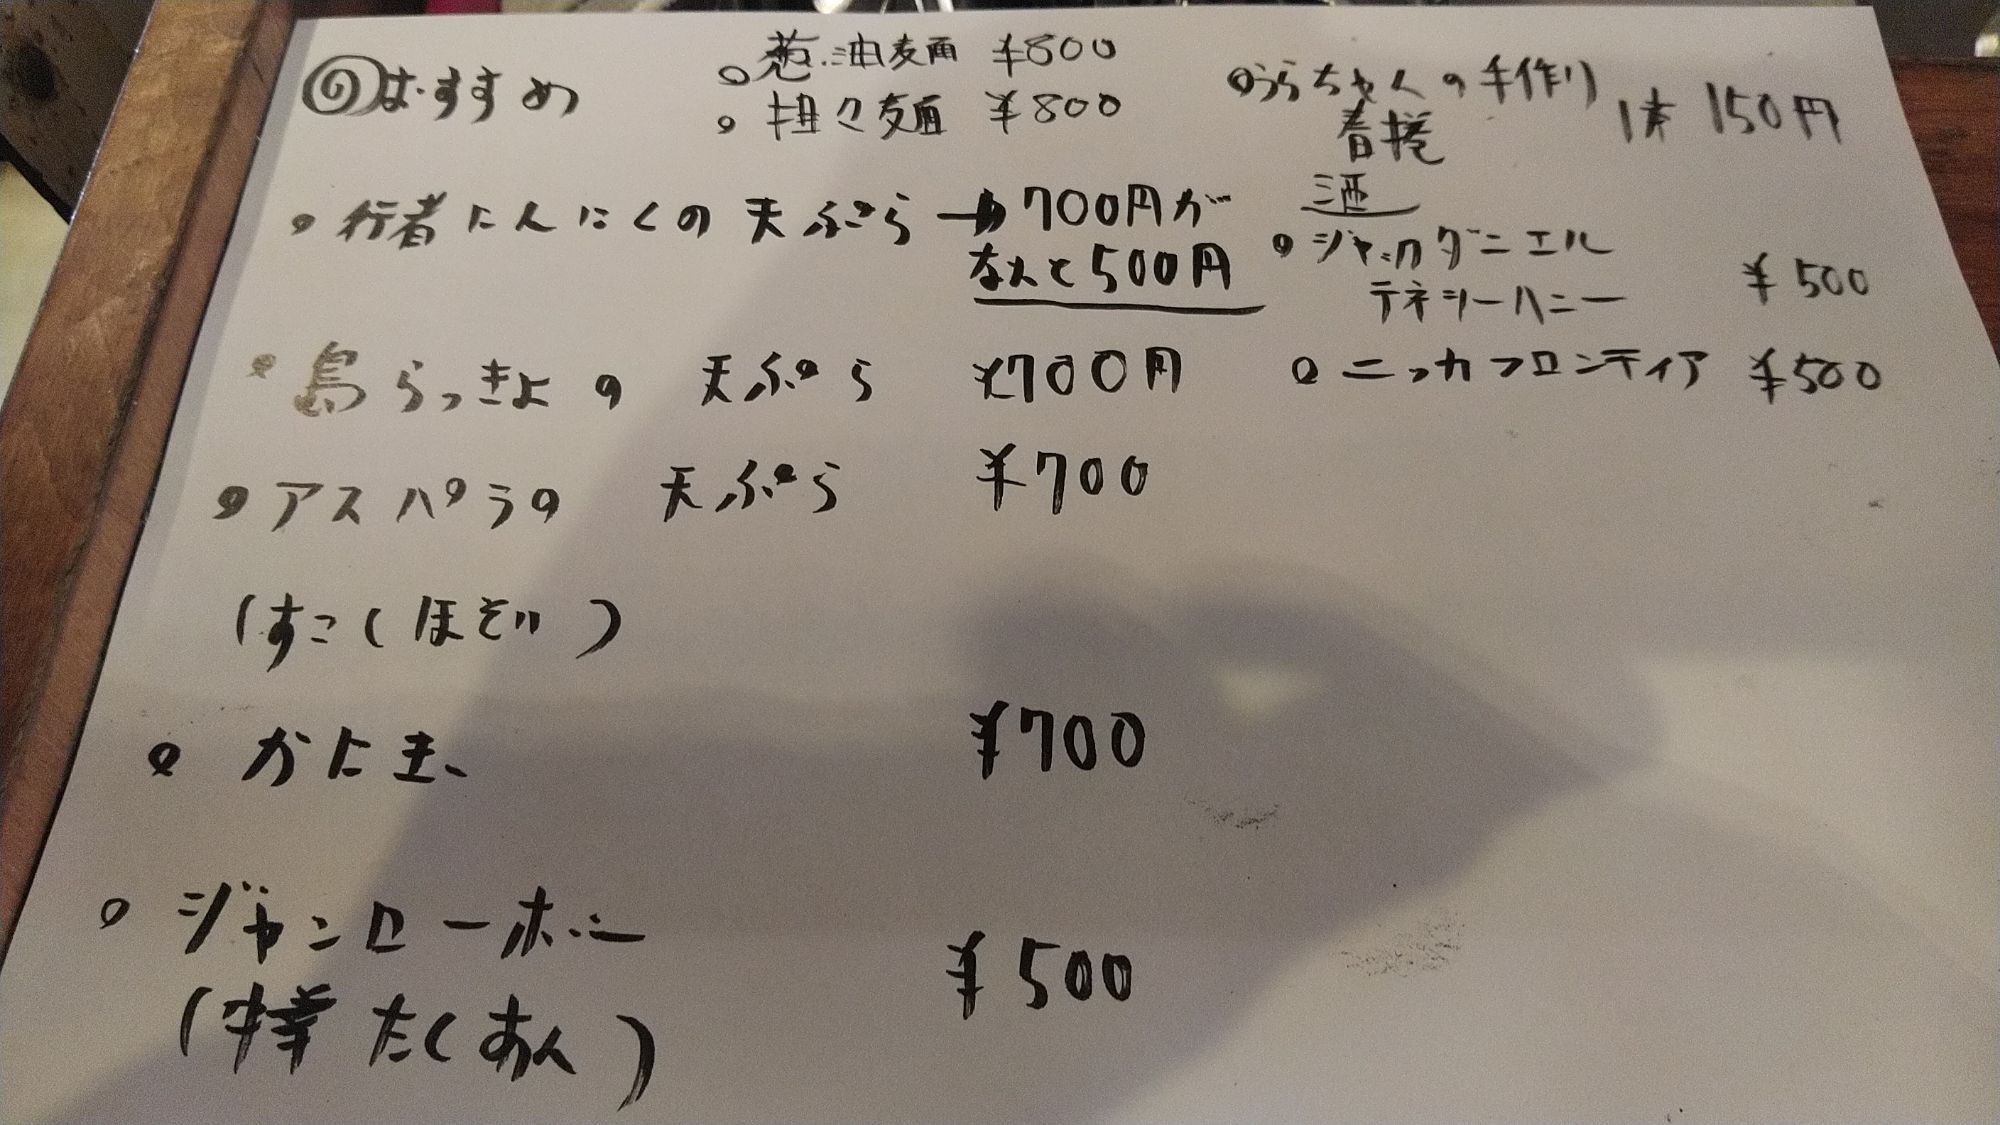 おすすめ
葱油麺 ¥800
担々麺 ¥800
行者にんにくの天ぷら → 700円が
なんと500円
島らっきょの 天ぷら ¥700円
アスパラの 天ぷら ¥700
(すこしほそい)
かにま、 ¥700
ジャンローホニー
(たくあん) ¥500
うらちゃんの手作り
春捲 1本 150円
酒
ジャックダニエル
テネシーハニー ¥500
ニッカフロンティア ¥500